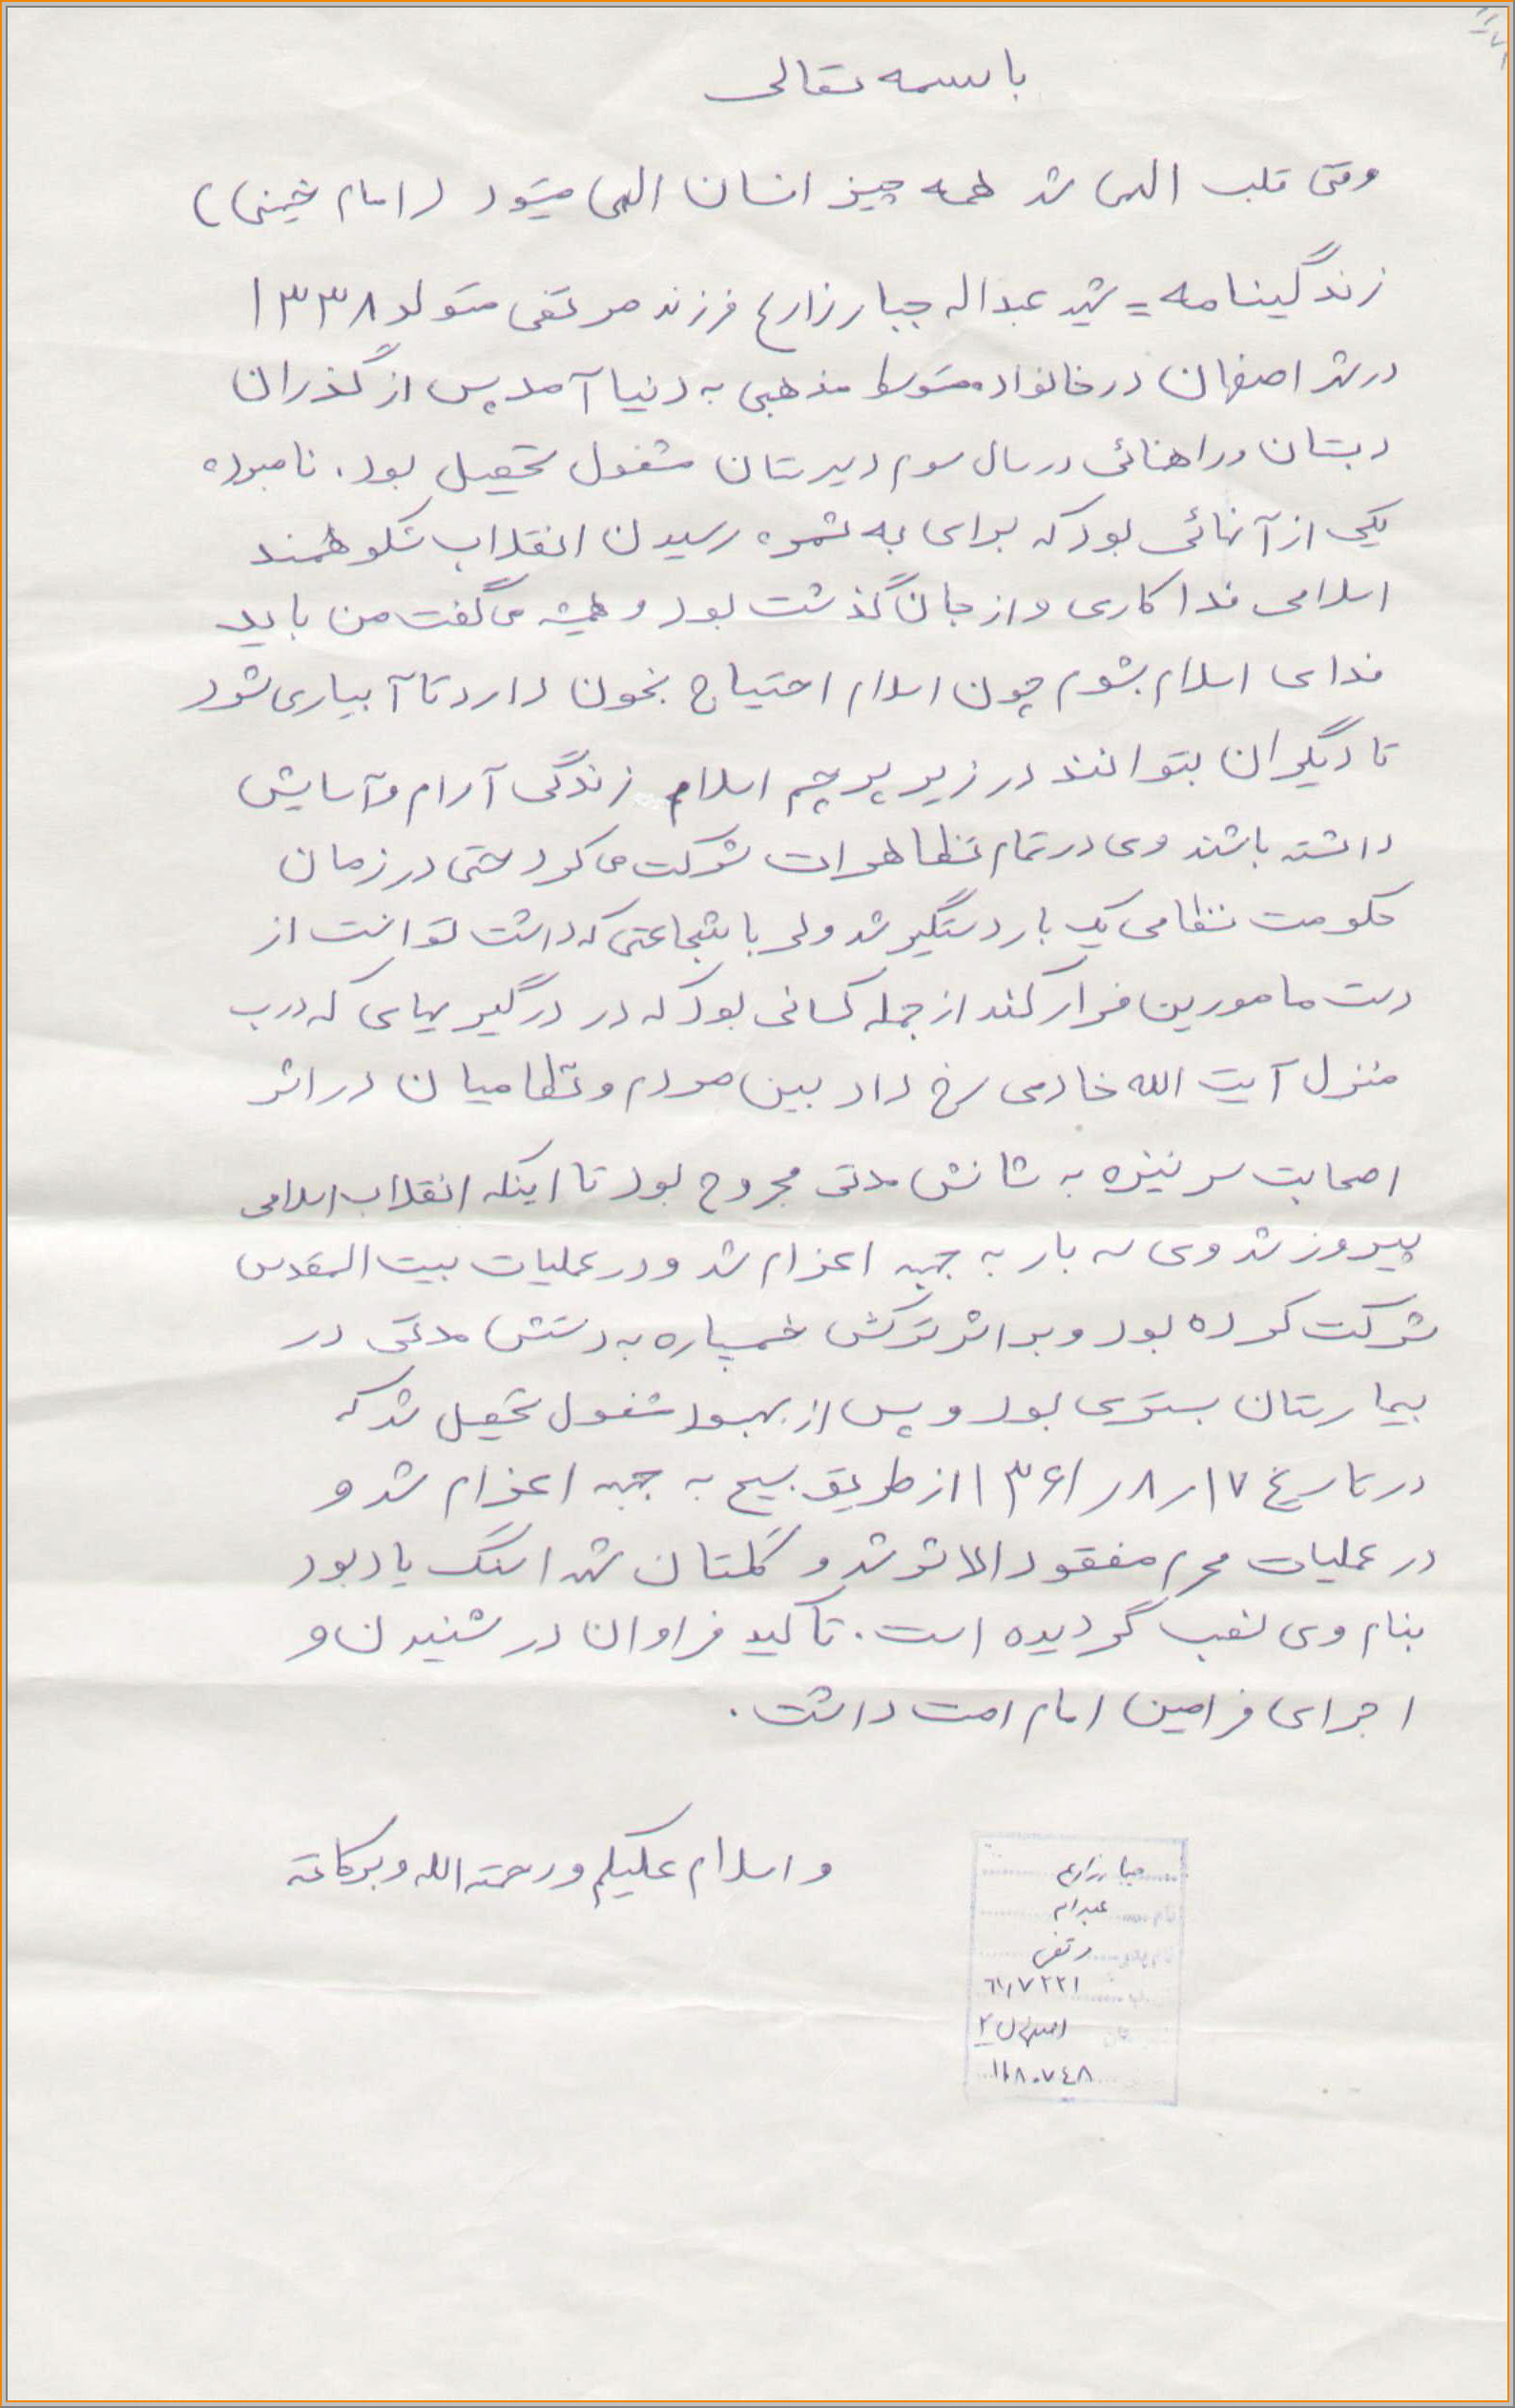 باسمه تعالی
وقتی قلب الهی شد همه چیز انسان الهی میشود (امام خمینی)
زندگینامه = شهید عبداله جبار زارع فرزند مرتضی متولد ۱۳۳۸
در شهر اصفهان در خانواده متوسط مذهبی به دنیا آمد پس از گذران
دبستان و راهنمائی در سال سوم دبیرستان مشغول تحصیل بود. نامبرده
یکی از آنهائی بود که برای به ثمره رسیدن انقلاب شکوهمند
اسلامی فداکاری و از جان گذشت بود و همیشه می گفت من باید
فدای اسلام بشوم چون اسلام احتیاج بخون دارد تا آبیاری شود
تا دیگران بتوانند در زیر پرچم اسلام زندگی آرام و آسایش
داشته باشند وی در تمام تظاهرات شرکت می کرد حتی در زمان
حکومت نظامی یک بار دستگیر شد ولی با شجاعتی که داشت توانست از
دست مامورین فرار کند از جمله کسانی بود که در درگیریهای که درب
منزل آیت الله خادمی رخ داد بین مردم و نظامیان در اثر
اصحابت سر نیزه به شانش مدتی مجروح بود تا اینکه انقلاب اسلامی
پیروز شد وی سه بار به جبهه اعزام شد و در عملیات بیت المقدس
شرکت کرده بود و بر اثر ترکش خمپاره به دستش مدتی در
بیمارستان بستری بود و پس از بهبود مشغول تحصیل شد که
در تاریخ ۱۷ر۸ر۱۳۶۱ از طریق بسیج به جبهه اعزام شد و
در عملیات محرم مفقود الاثر شد و گلستان شهدا سنگ یادبود
بنام وی نصب گردیده است. تاکید فراوان در شنیدن و
اجرای فرامین امام امت داشت.
و اسلام علیکم و رحمته الله و برکاته
جبار زارع
نام عبداله
نام پدر مرتضی
اصفهان ۲